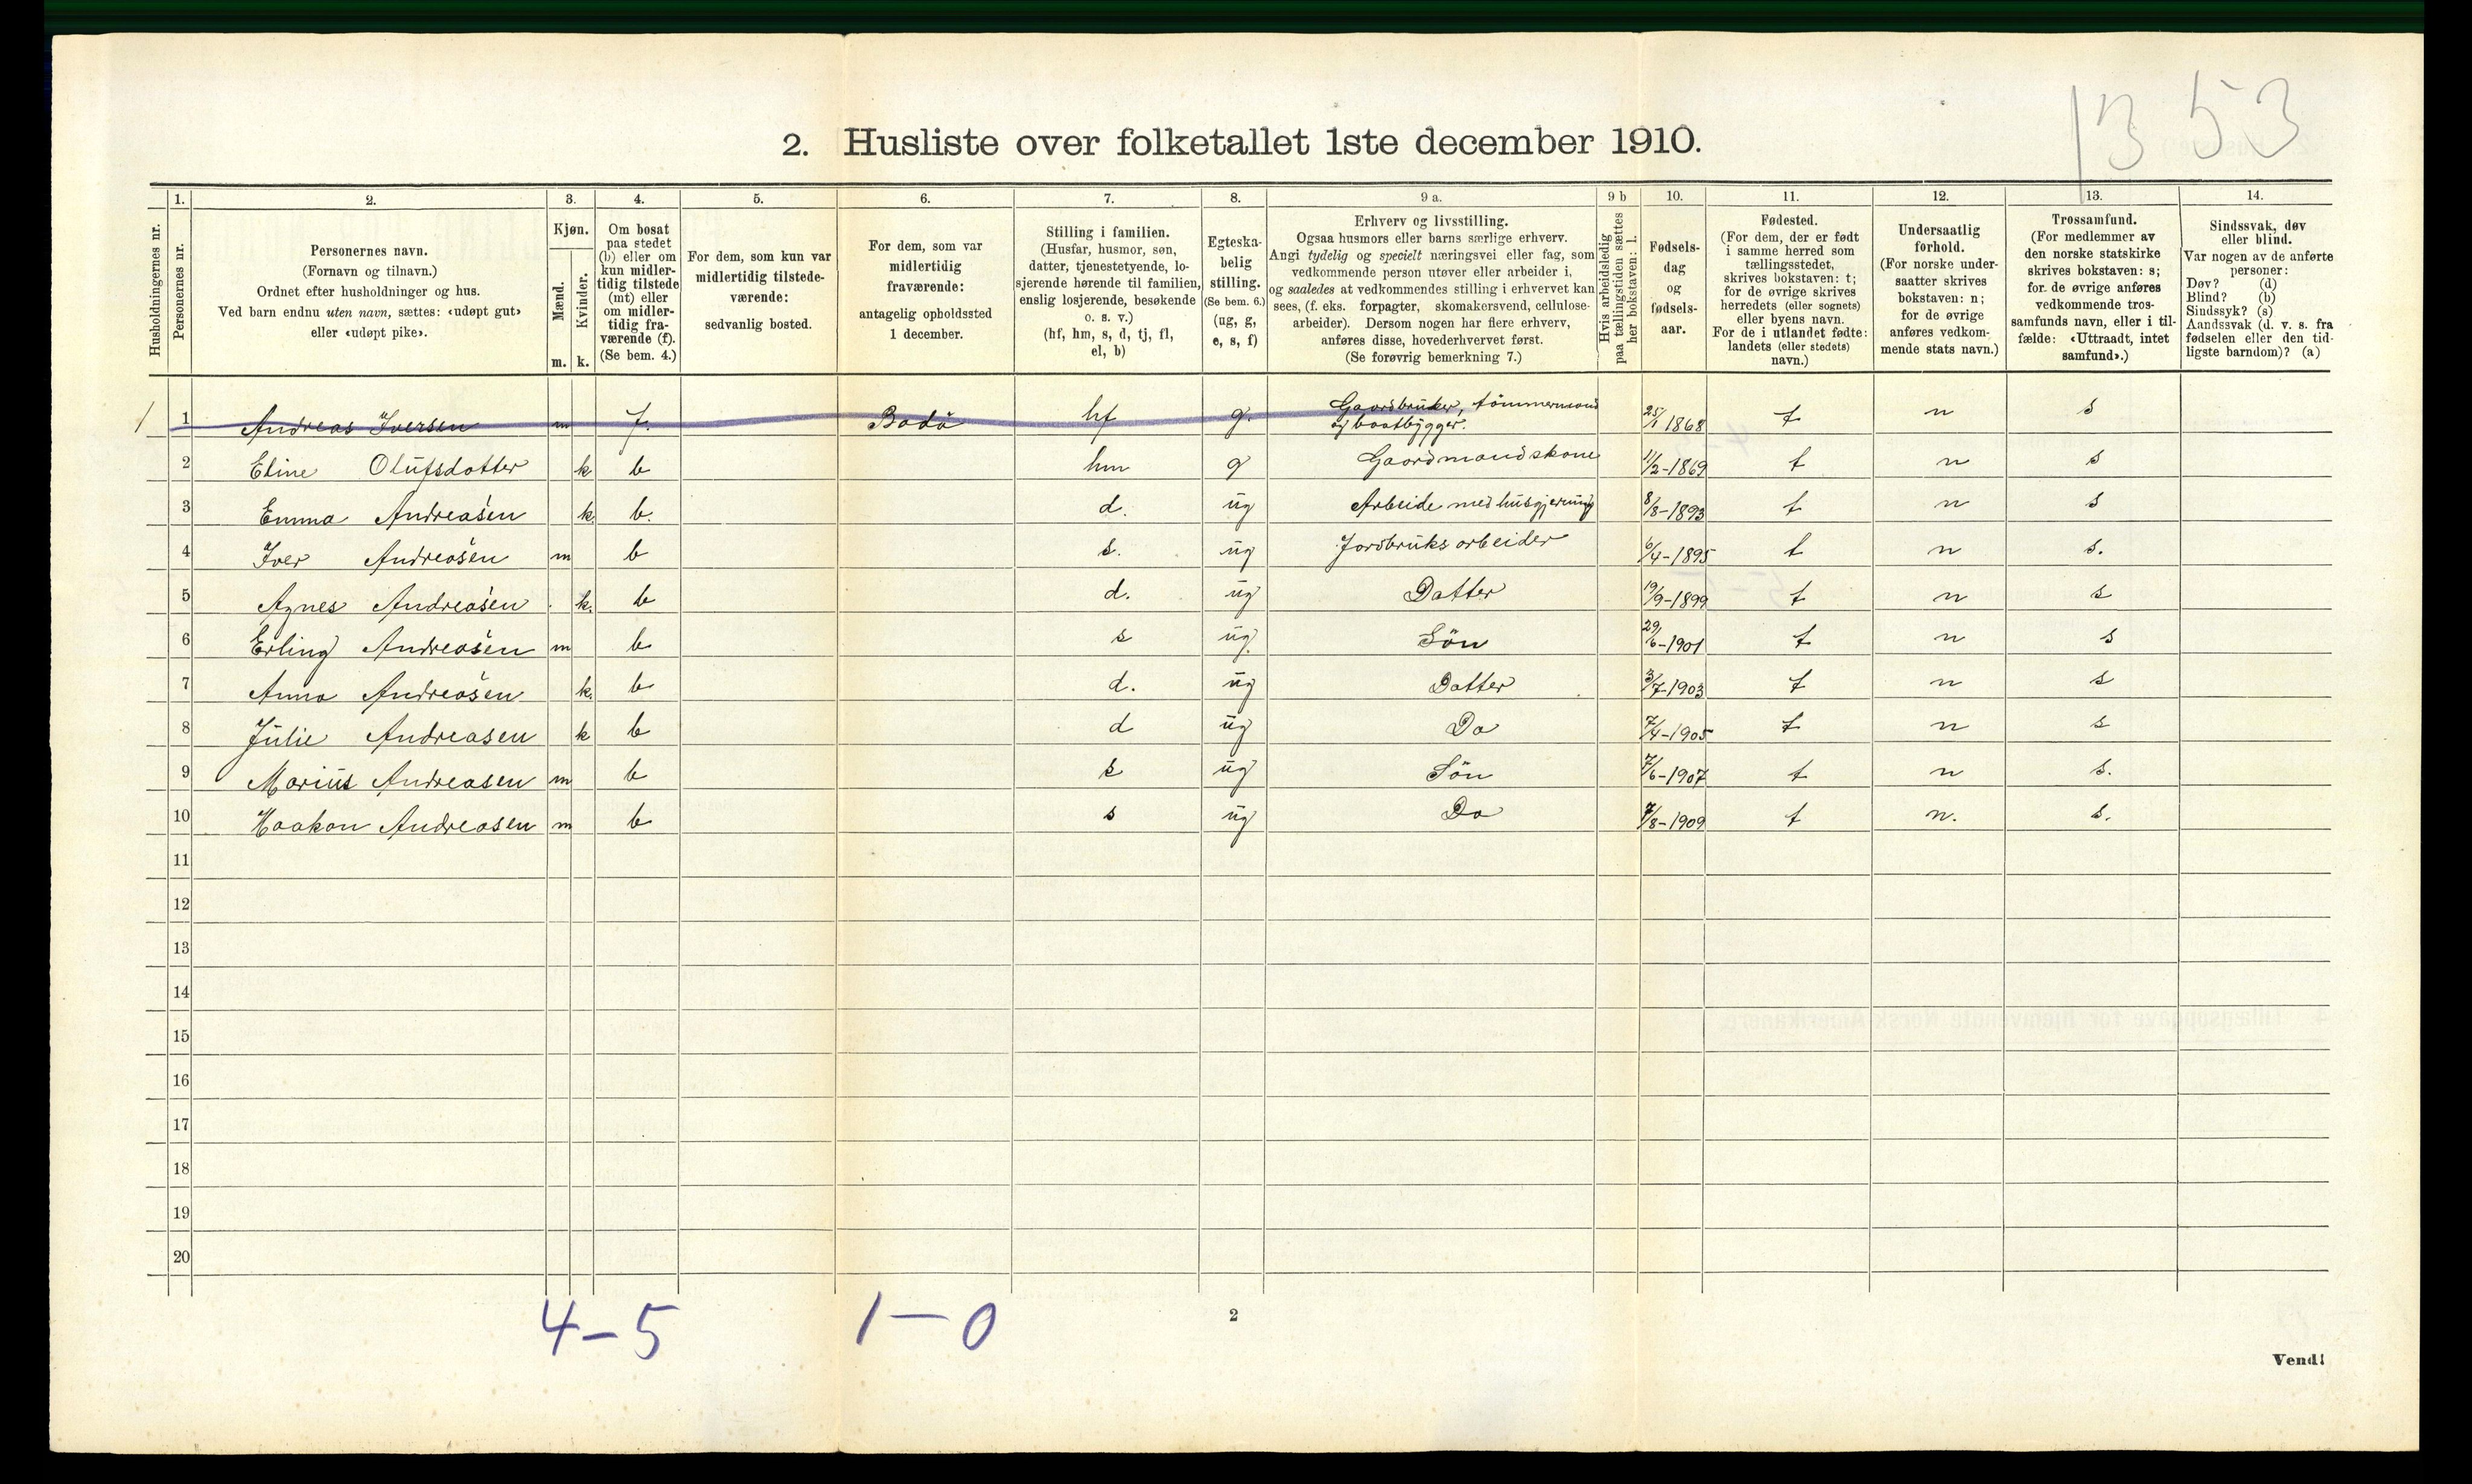 1353
2. Husliste over folketallet 1ste december 1910.
Husholdningernes nr.
1.
Personernes nr.
2.
Personernes navn.
(Fornavn og tilnavn.)
Ordnet efter husholdninger og hus.
Ved barn endnu uten navn, sættes: «udøpt gut»
eller «udøpt pike».
3.
Kjøn.
Mænd.
Kvinder.
m. k.
4.
Om bosat
paa stedet
(b) eller om
kun midler-
tidig tilstede
(mt) eller
om midler-
tidig fra-
værende (f).
(Se bem. 4.)
5.
For dem, som kun var
midlertidig tilstede-
værende:
sedvanlig bosted.
6.
For dem, som var
midlertidig
fraværende:
antagelig opholdssted
1 december.
7.
Stilling i familien.
(Husfar, husmor, søn,
datter, tjenestetyende, lo-
sjerende hørende til familien,
enslig losjerende, besøkende
o. s. v.)
(hf, hm, s, d, tj, fl,
el, b)
8.
Egteska-
belig
stilling.
(Se bem. 6.)
(ug, g,
e, s, f)
9 a.
Erhverv og livsstilling.
Ogsaa husmors eller barns særlige erhverv.
Angi tydelig og specielt næringsvei eller fag, som
vedkommende person utøver eller arbeider i,
og saaledes at vedkommendes stilling i erhvervet kan
sees, (f. eks. forpagter, skomakersvend, cellulose-
arbeider). Dersom nogen har flere erhverv,
anføres disse, hovederhvervet først.
(Se forøvrig bemerkning 7.)
9 b
Hvis arbeidsledig
paa tællingstiden sættes
her bokstaven: l.
10.
Fødsels-
dag
og
fødsels-
aar.
11.
Fødested.
(For dem, der er født
i samme herred som
tællingsstedet,
skrives bokstaven: t;
for de øvrige skrives
herredets (eller sognets)
eller byens navn.
For de i utlandet fødte:
landets (eller stedets)
navn.)
12.
Undersaatlig
forhold.
(For norske under-
saatter skrives
bokstaven: n;
for de øvrige
anføres vedkom-
mende stats navn.)
13.
Trossamfund.
(For medlemmer av
den norske statskirke
skrives bokstaven: s;
for de øvrige anføres
vedkommende tros-
samfunds navn, eller i til-
fælde: «Uttraadt, intet
samfund».)
14.
Sindssvak, døv
eller blind.
Var nogen av de anførte
personer:
Døv? (d)
Blind? (b)
Sindssyk? (s)
Aandssvak (d. v. s. fra
fødselen eller den tid-
ligste barndom)? (a)
1 1 Andreas Iversen m f. Bodö hf g. Gaardbruker, tömmermand og baatbygger. 25/1 1868 t n s
2 Eline Olufsdotter k b hm g Gaardmandskone 11/2-1869 t n s
3 Emma Andreasen k. b. d. ug Arbeide med husgjerning 8/8-1893 t n s
4 Iver Andreasen m b s. ug Jordbruks arbeider 6/4-1895 t n s.
5 Agnes Andreasen k. b d. ug Datter 19/9-1899 t n s
6 Erling Andreasen m b s ug. Sön 29/6-1901 t n s
7 Anna Andreasen k. b d. ug Datter 3/7-1903 t n s
8 Julie Andreasen k b d ug Do 7/4-1905 t n s
9 Marius Andreasen m b s ug Sön 7/6-1907 t n s.
10 Haakon Andreasen m b s ug Do 7/8-1909 t n. s.
11
12
13
14
15
16
17
18
19
20
4-5 1-0
2
Vend!